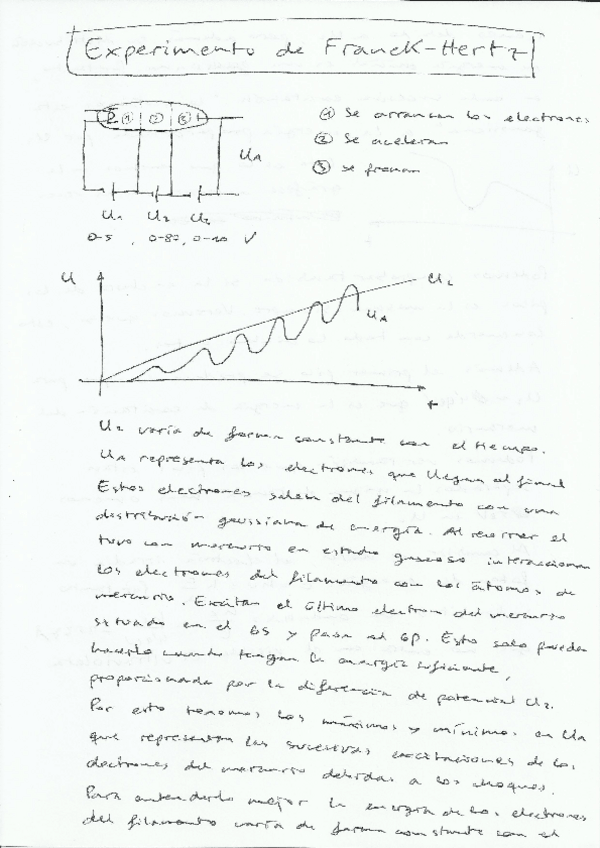 Experimento de Franck-Hertz
① ② ③
① Se arrancan los electrones
② Se aceleran
③ Se frenan
UA
U1 U2 U3
0-5, 0-80, 0-10 V
U
U2
UA
t
U2 varía de forma constante con el tiempo.
UA representa los electrones que llegan al final
Estos electrones salen del filamento con una
distribución gaussiana de energía. Al recorrer el
tuvo con mercurio en estado gaseoso interaccionan
los electrones del filamento con los átomos de
mercurio. Excitan el último electron del mercurio
situado en el 6S y pasa al 6p. Esto solo pueden
hacerlo cuando tengan la energía suficiente,
proporcionada por la diferencia de potencial U2.
Por esto tenemos los máximos y mínimos en UA
que representan las sucesivas excitaciones de los
electrones del mercurio debidas a los choques.
Para entenderlo mejor la energía de los electrones
del filamento varía de forma constante con el